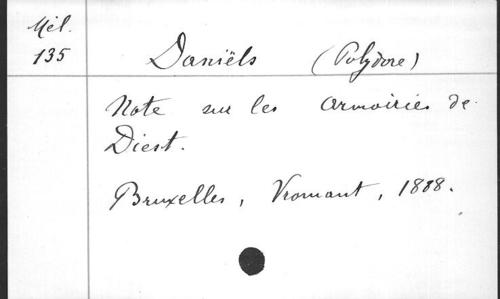 Mél.
135
Daniëls (Polydore)
Note sur les Armoiries de
Diest.
Bruxelles, Vromant, 1888.